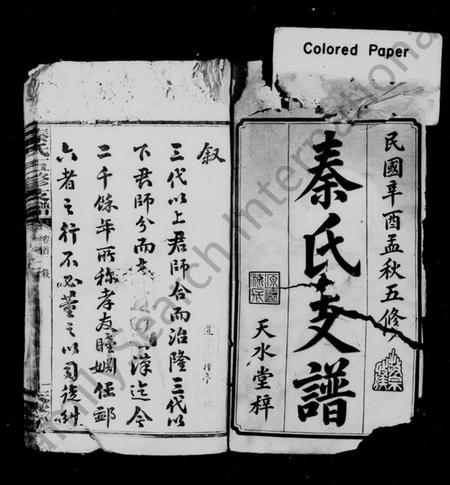 Colored Paper
民國辛酉孟秋五修
秦氏支譜
天水堂梓
叙
三代以上君師合而治隆三代以
下君師分而
漢迄今
二千餘年所稱孝友睦婣任卹
六者之行不必董之以司徒糾
秦氏五修支譜
FamilySearch International